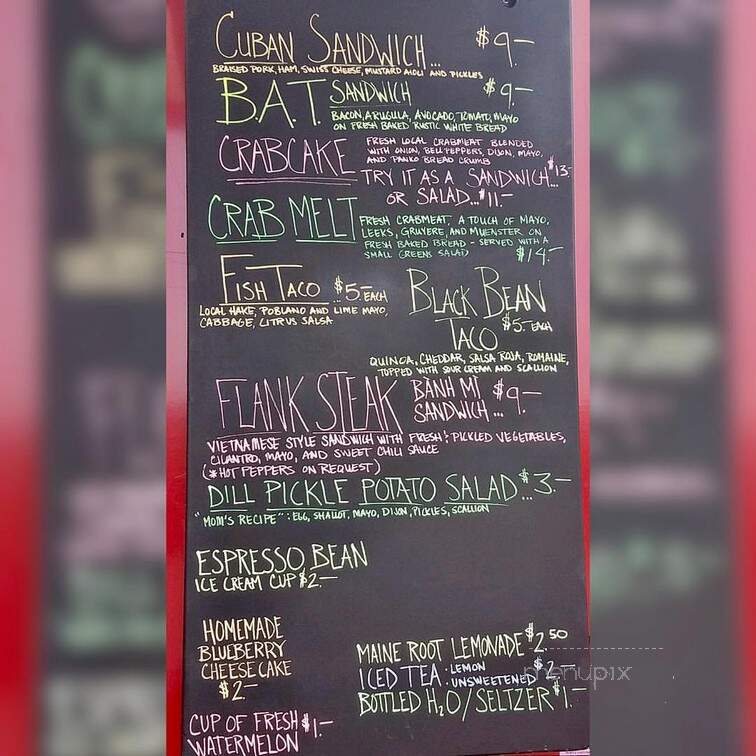 CUBAN SANDWICH... $9-
BRAISED PORK, HAM, SWISS CHEESE, MUSTARD AIOLI AND PICKLES
B.A.T. SANDWICH $9-
BACON, ARUGULA, AVOCADO, TOMATO, MAYO
ON FRESH BAKED RUSTIC WHITE BREAD
CRABCAKE FRESH LOCAL CRABMEAT BLENDED
WITH ONION, BELL PEPPERS, DIJON, MAYO,
AND PANKO BREAD CRUMB
TRY IT AS A SANDWICH... $13-
OR SALAD... $11-
CRAB MELT FRESH CRABMEAT, A TOUCH OF MAYO,
LEEKS, GRUYERE, AND MUENSTER ON
FRESH BAKED BREAD - SERVED WITH A
SMALL GREENS SALAD $14-
FISH TACO $5- EACH
LOCAL HAKE, POBLANO AND LIME MAYO,
CABBAGE, CITRUS SALSA
BLACK BEAN
TACO $5- EACH
QUINOA, CHEDDAR, SALSA ROJA, ROMAINE,
TOPPED WITH SOUR CREAM AND SCALLION
FLANK STEAK BÀNH MÌ
SANDWICH... $9-
VIETNAMESE STYLE SANDWICH WITH FRESH & PICKLED VEGETABLES,
CILANTRO, MAYO, AND SWEET CHILI SAUCE
(*HOT PEPPERS ON REQUEST)
DILL PICKLE POTATO SALAD... $3-
"MOM'S RECIPE": EGG, SHALLOT, MAYO, DIJON, PICKLES, SCALLION
ESPRESSO BEAN
ICE CREAM CUP $2-
HOMEMADE
BLUEBERRY
CHEESECAKE
$2-
CUP OF FRESH $1-
WATERMELON
MAINE ROOT LEMONADE $2.50
ICED TEA: LEMON $2-
: UNSWEETENED
BOTTLED H2O/SELTZER $1-
menupix